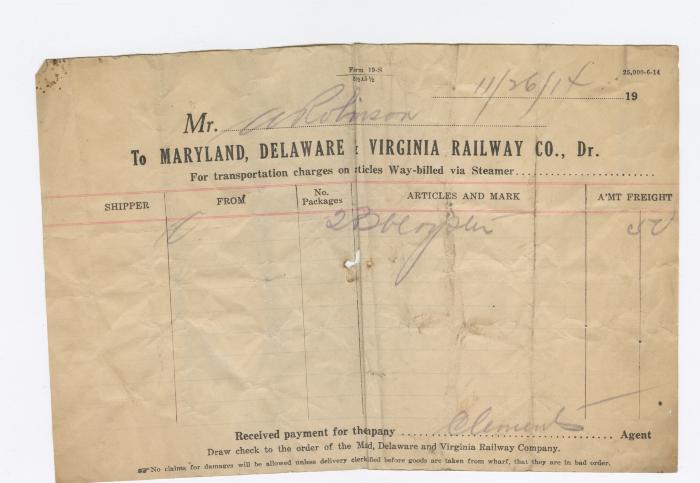 Form 19-S
8½x5½
25,000-6-14
11/26/14 19
Mr. A Robinson
To MARYLAND, DELAWARE & VIRGINIA RAILWAY CO., Dr.
For transportation charges on ticles Way-billed via Steamer
SHIPPER FROM No. Packages ARTICLES AND MARK A'MT FREIGHT
2 Bbl oysters 50
Received payment for the pany Clements Agent
Draw check to the order of the Ma d, Delaware and Virginia Railway Company.
☞ No claims for damages will be allowed unless delivery clerk fied before goods are taken from wharf, that they are in bad order.